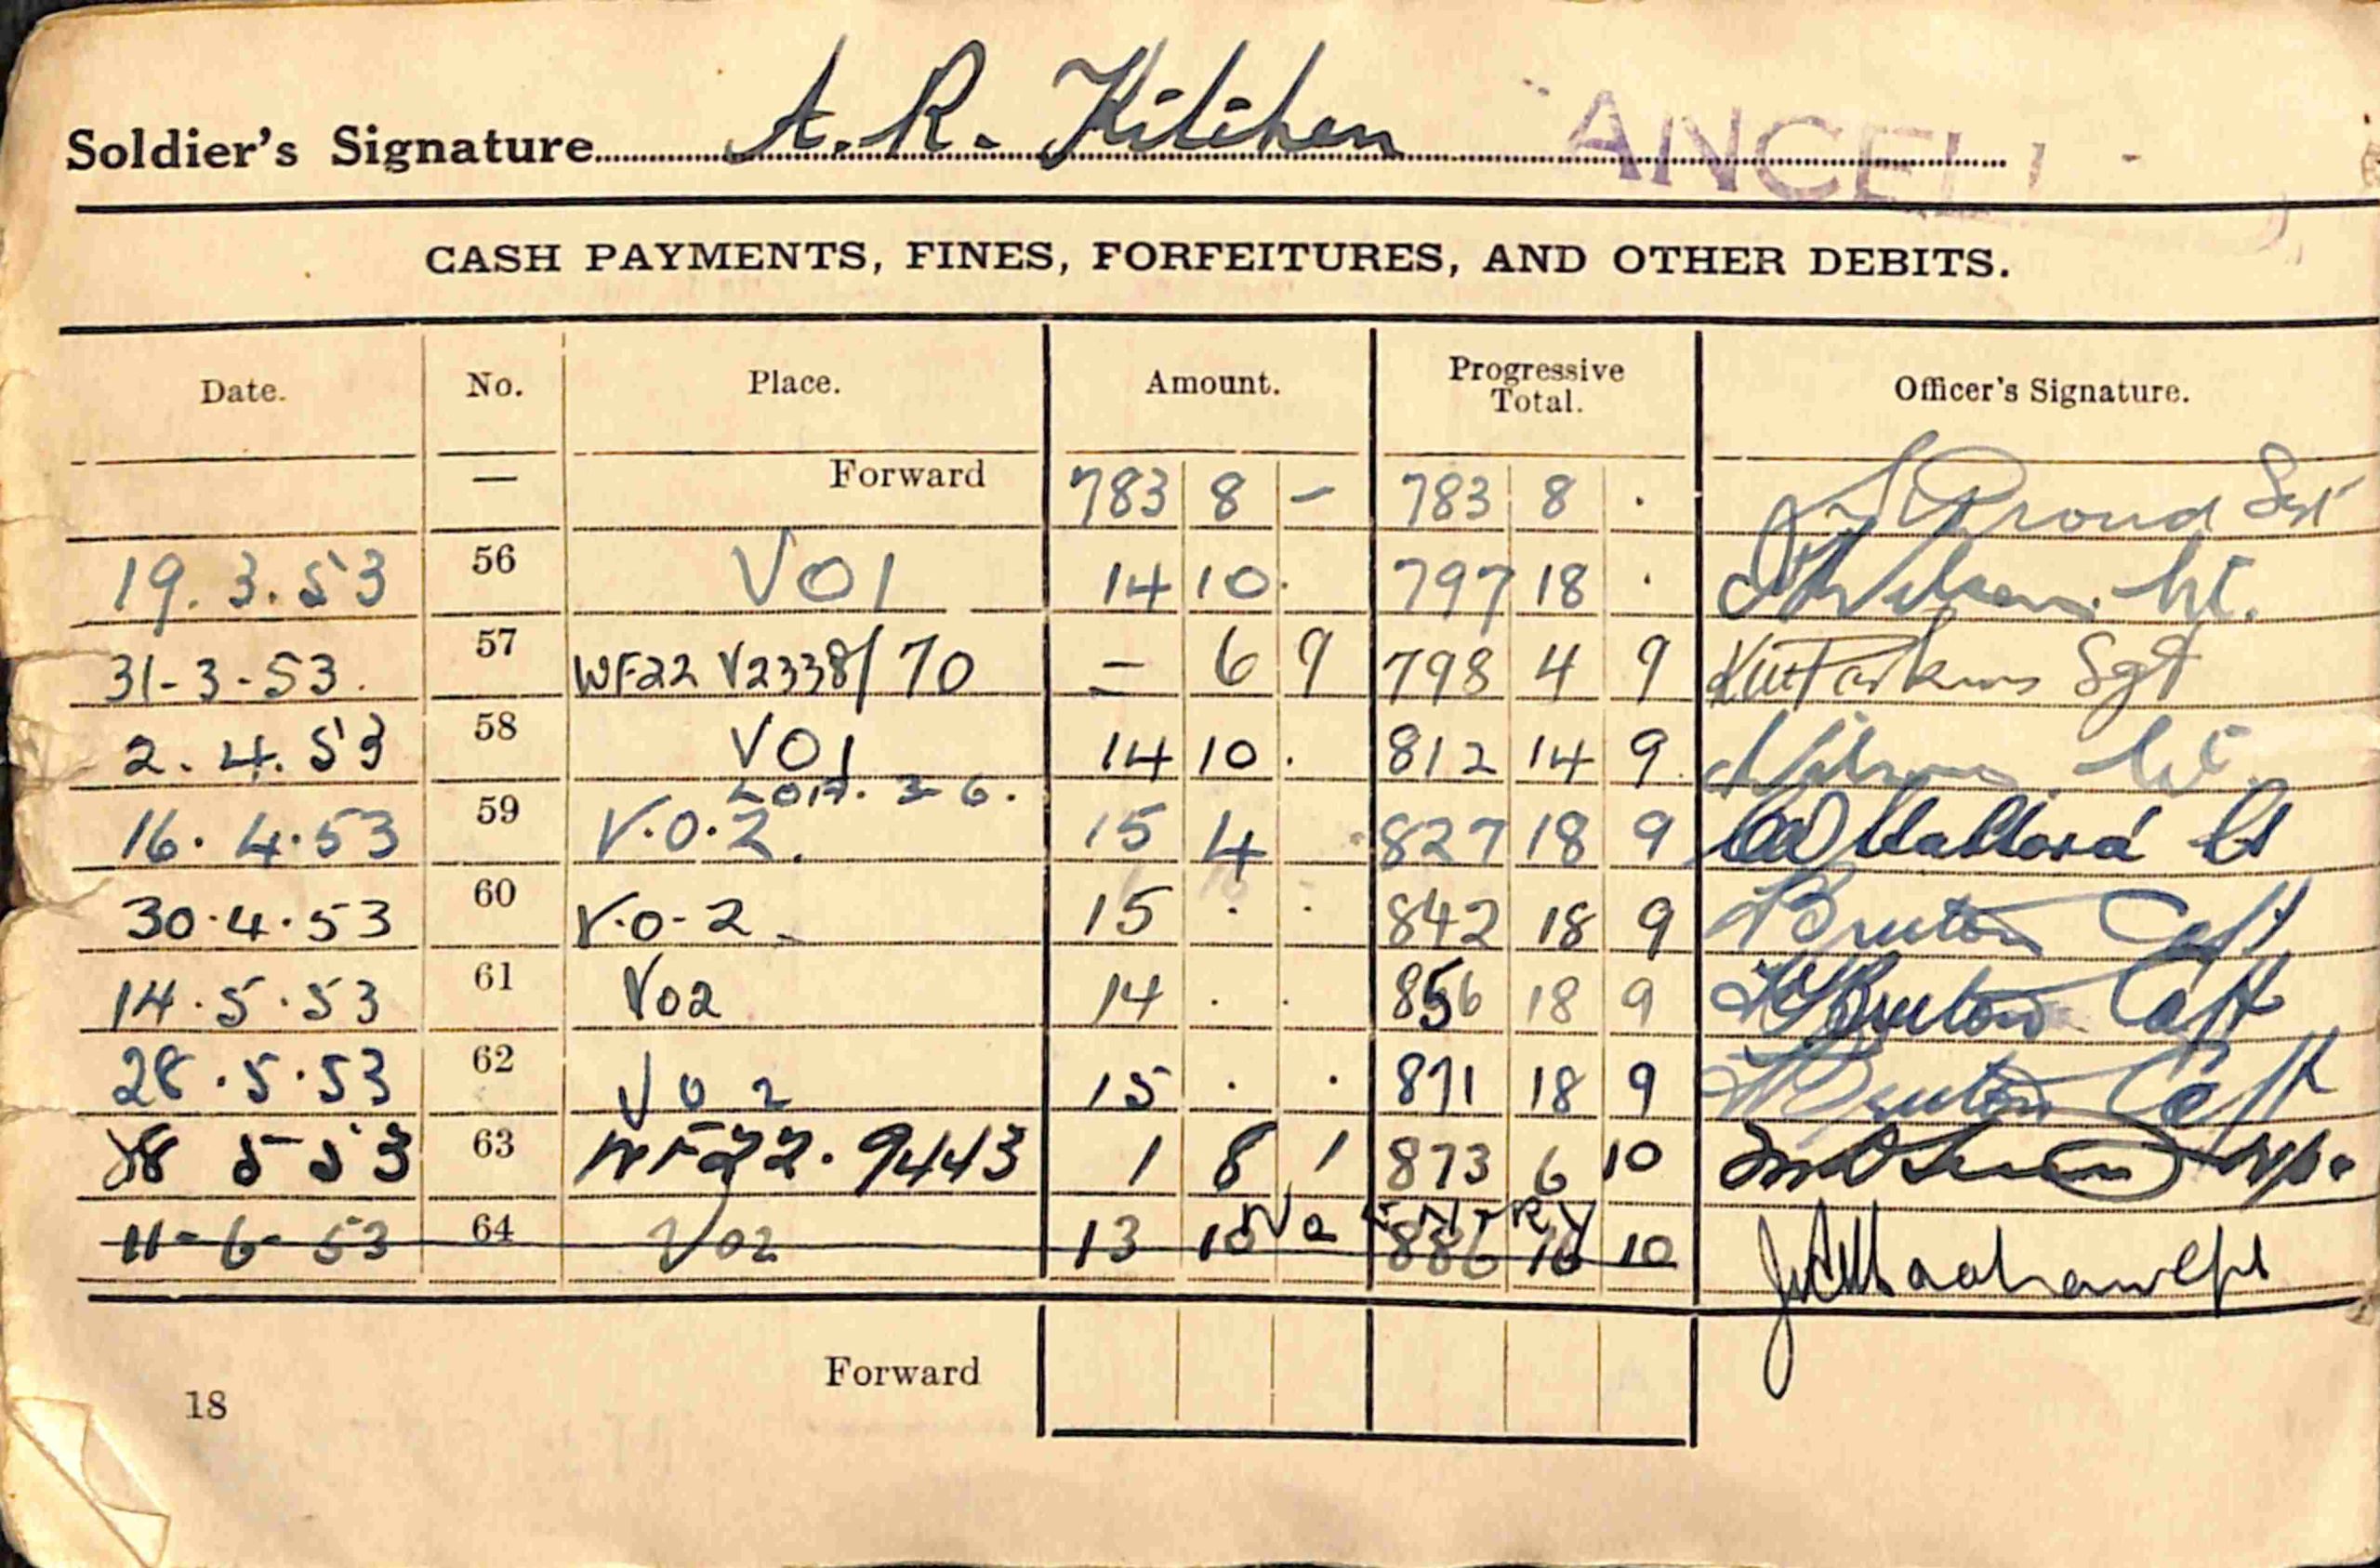 Soldier's Signature A. R. Kitchen
ANCELL
CASH PAYMENTS, FINES, FORFEITURES, AND OTHER DEBITS.
Date. No. Place. Amount. Progressive Total. Officer's Signature.
— Forward 783 8 – 783 8 . Proud Sgt
19.3.53 56 VO1 14 10. 797 18 . Wilson Lt.
31-3-53. 57 WF22 V2338/70 – 6 9 798 4 9 Sgt
2.4.53 58 VO1 14 10. 812 14 9 Lt.
16.4.53 59 V.O.2. 15 4 827 18 9 Lt
30.4.53 60 V.O-2- 15 . . 842 18 9 Bruton Capt
14.5.53 61 V02 14 . . 856 18 9 Bruton Capt
28.5.53 62 V02 15 . . 871 18 9 Bruton Capt
28 5 53 63 WF22.9443 1 8 1 873 6 10
No ENTRY
11-6-53 64 V02 13 10 886 16 10
Forward
18